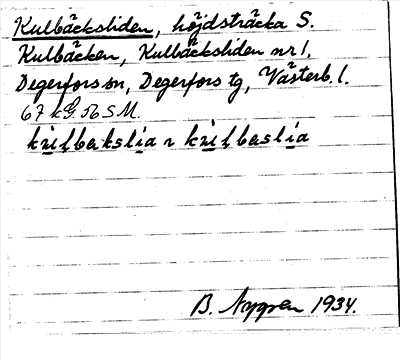 Kulbäcksliden, höjdsträcka S.
Kulbäcken, Kulbäcksliden nr 1,
Degerfors sn, Degerfors tg, Västerb. l.
67 kG. 56 SM.
B. Nygren 1934.